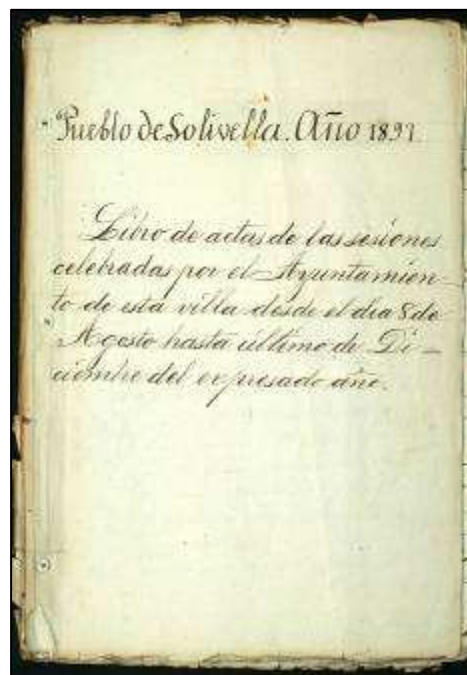 Pueblo de Solivella. Año
Libro de actas de las sesiones
celebradas por el Ayuntamien-
to de esta villa desde el dia 8 de
Agosto hasta último de Di-
ciembre del expresado año.